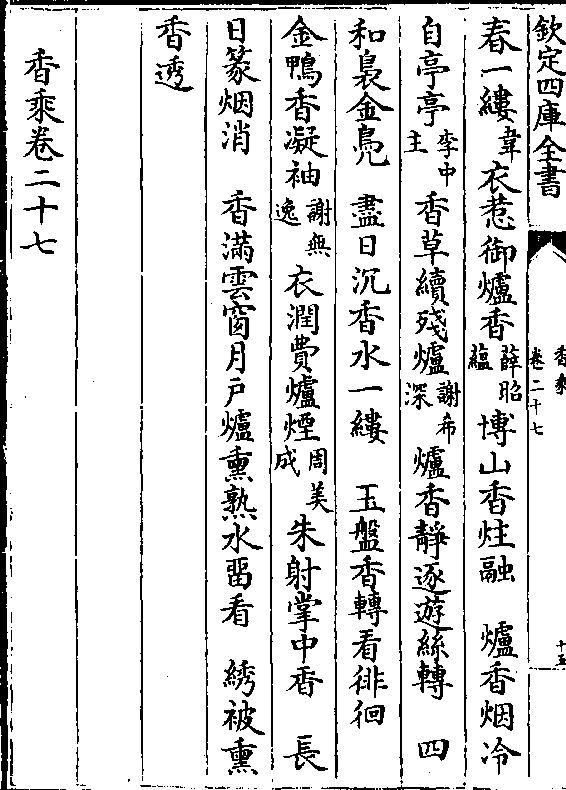 欽定四庫全書
香乘
卷二十七
十五
春一縷韋 衣惹御爐香薛昭蘊 博山香炷融 爐香烟冷
自亭亭李中主 香草續殘爐謝希深 爐香靜逐遊絲轉 四
和裊金鳧 盡日沉香水一縷 玉盤香轉看徘徊
金鴨香凝袖謝無逸 衣潤費爐煙周美成 朱射掌中香 長
日篆烟消 香滿雲窗月戶爐熏熟水留看 綉被熏
香透
香乘卷二十七